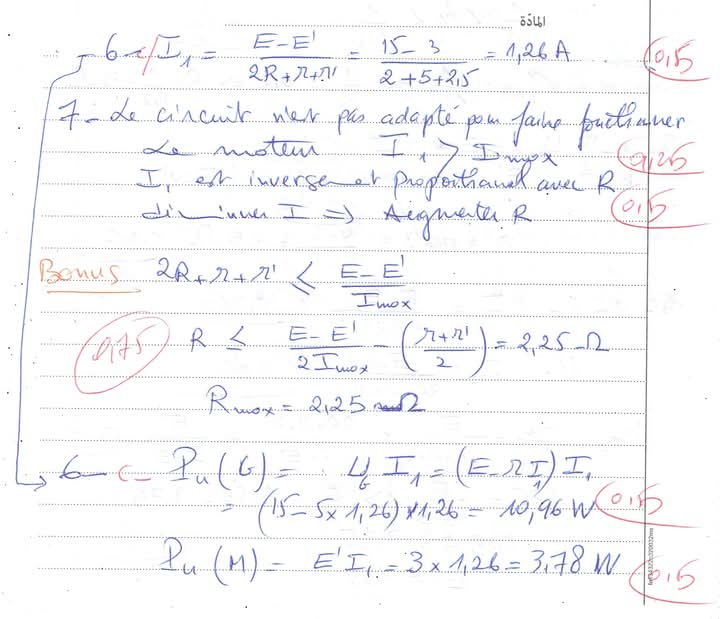 المادة
6 - c/ I₁ = (E - E')/(2R + r + r') = (15 - 3)/(2 + 5 + 2,5) = 1,26 A 0,5
7 - Le circuit n'est pas adapté pour faire fonctionner
Le moteur I₁ > Imax 0,25
I₁ est inversement proportionnel avec R
diminuer I ⇒ Augmenter R 0,5
Bonus 2R + r + r' ≤ (E - E')/Imax
0,75 R ≤ (E - E')/(2 Imax) - ((r + r')/2) = 2,25 Ω
Rmax = 2,25 Ω
6 - c - Pu (G) = U_G I₁ = (E - r I₁) I₁
= (15 - 5 x 1,26) x 1,26 = 10,96 W 0,5
Pu (M) = E' I₁ = 3 x 1,26 = 3,78 W 0,5